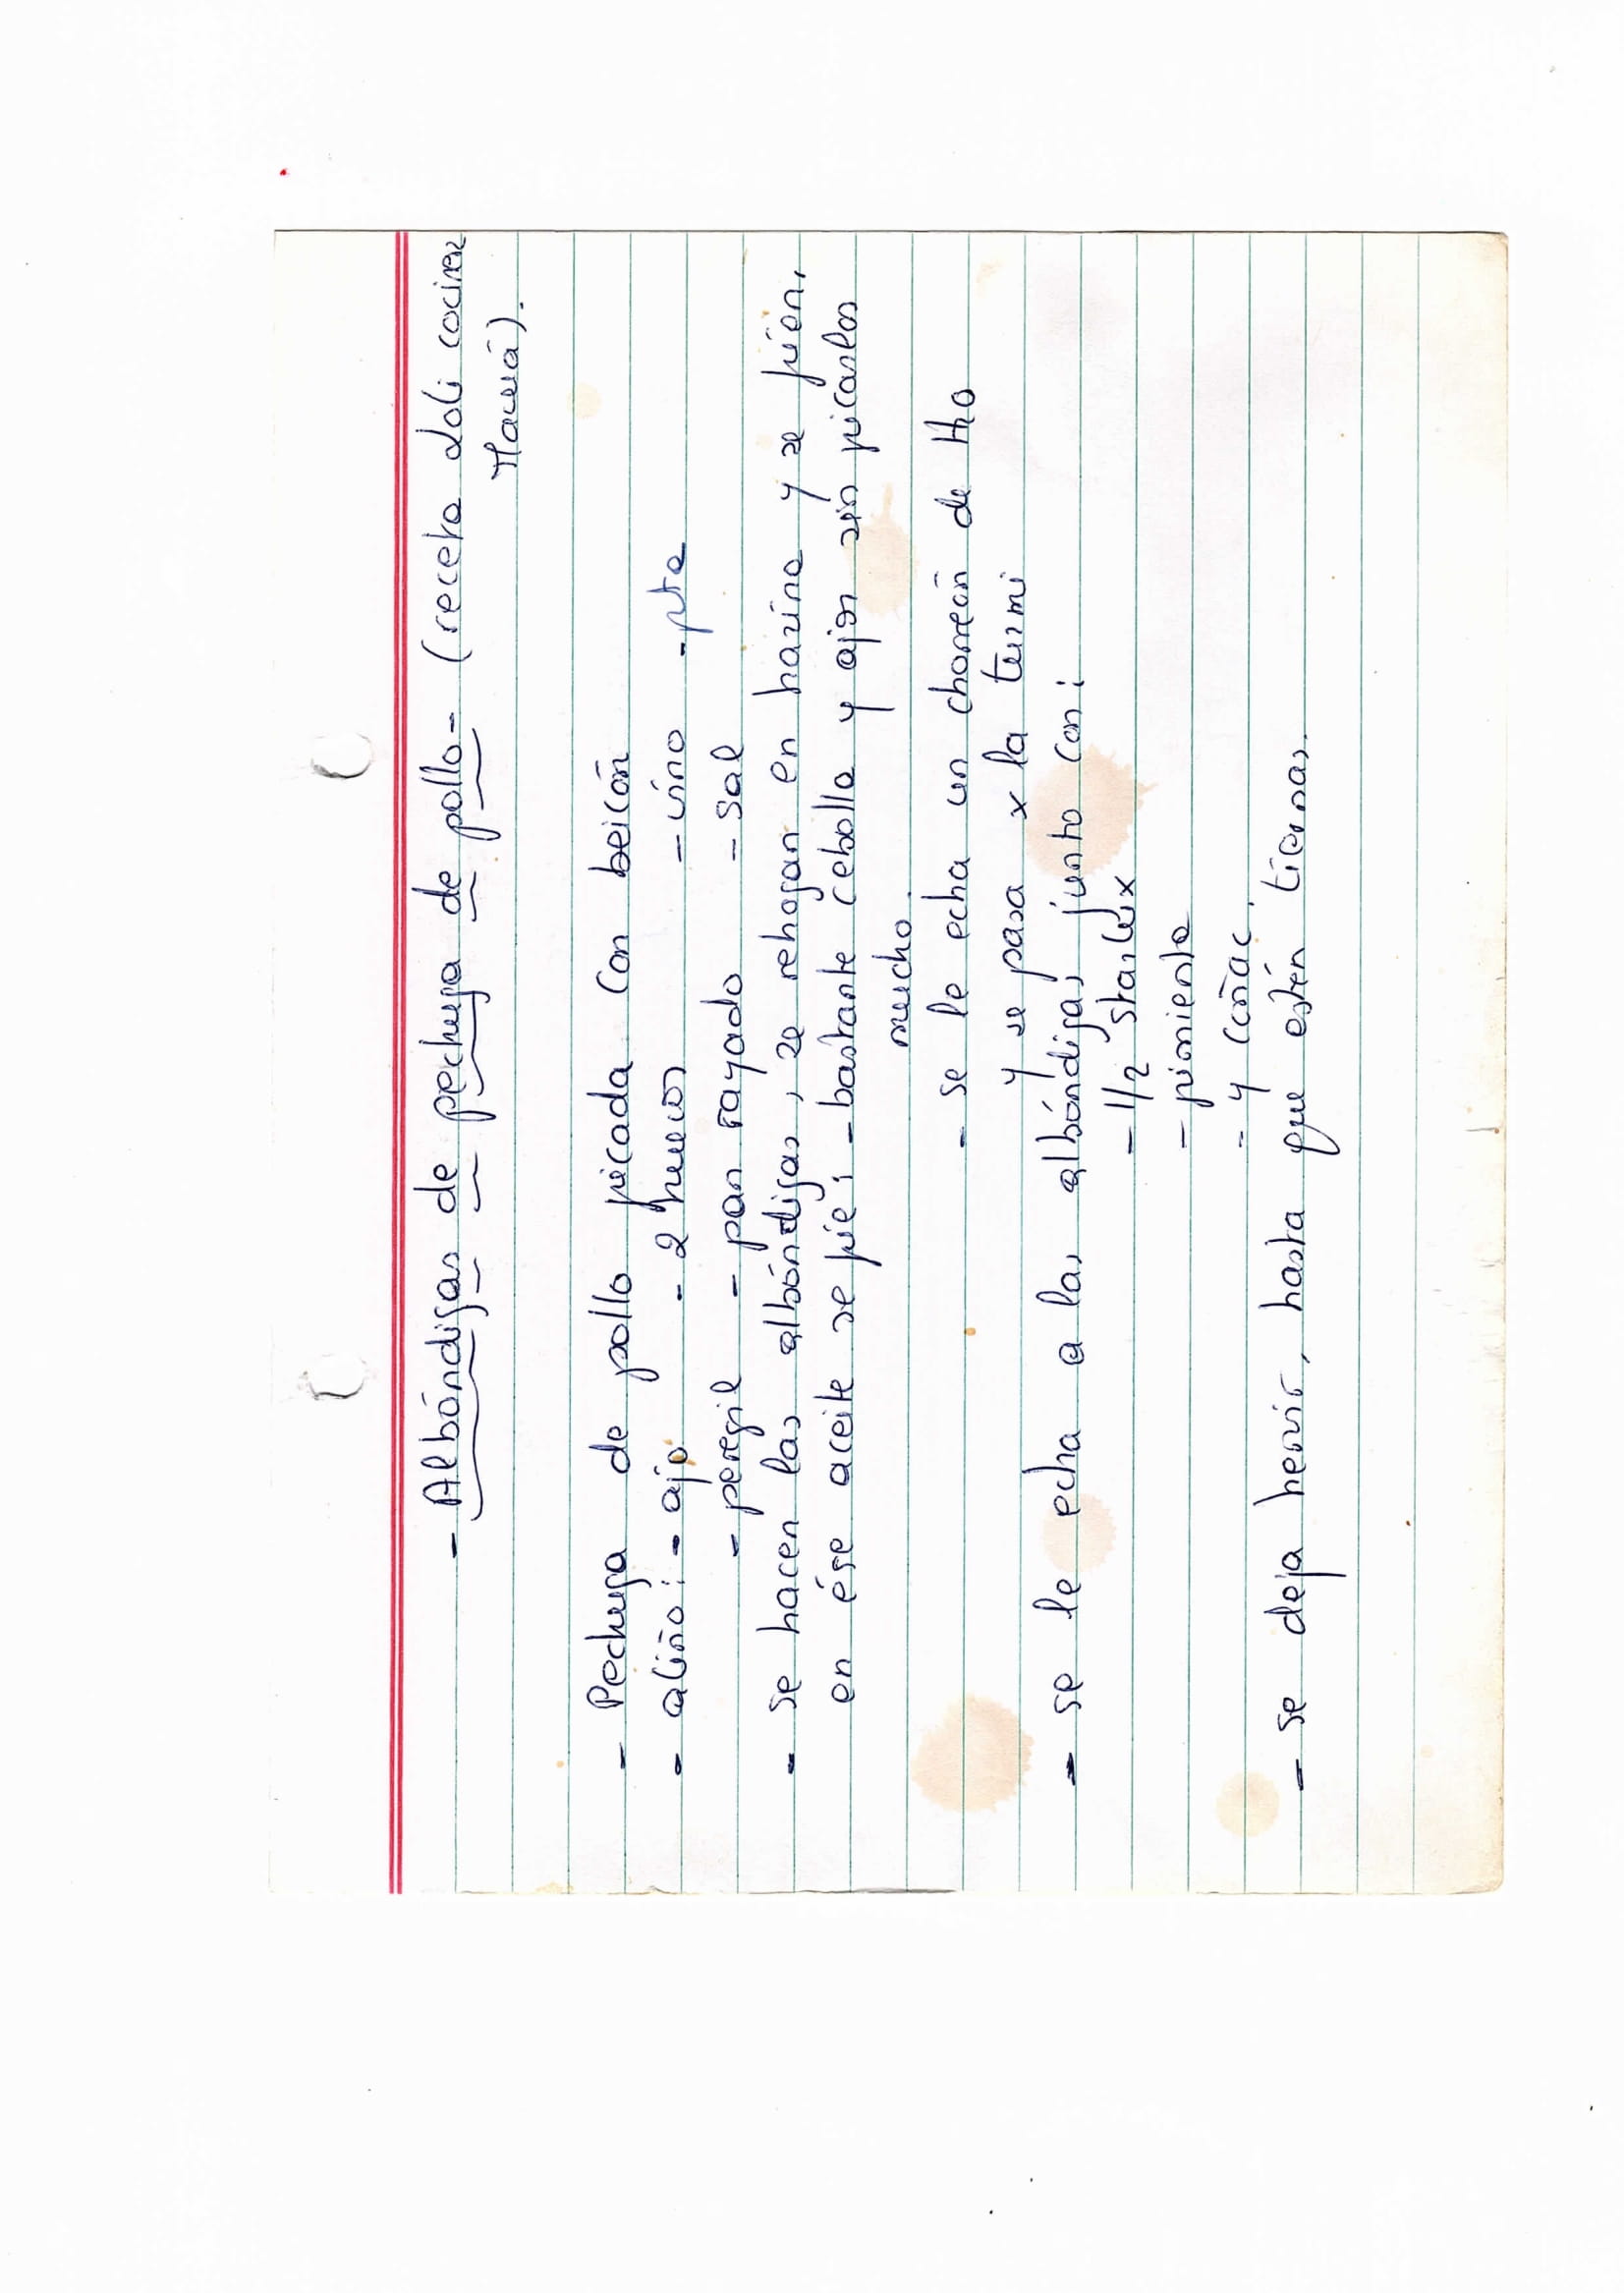 - Albóndigas de pechuga de pollo - (receta Loli cocina
Macuá).
- Pechuga de pollo picada con beicón
- aliño: - ajo - 2 huevos - vino - pta
- peregil - pan rayado - sal
- se hacen las albóndigas, se rehogan en harina y se fríen,
en ése aceite se fríe: - bastante cebolla y ajos sin picarlos
mucho.
- se le echa un chorreón de tto
y se pasa x la turmi
- se le echa a las albóndigas junto con:
- 1/2 starlux
- pimienta
- y coñac.
- se deja hervir, hasta que estén tiernas.